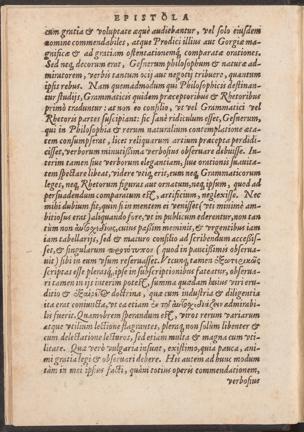 EPISTOLA
cum gratia & voluptate æquè audiebantur, vel solo eiusdem
nomine commendabiles, atque Prodici illius aut Gorgiæ mag-
nificæ & ad gratiam ostentationemq́; comparatæ orationes.
Sed neq́; decorum erat, Gesnerum philosophum & naturæ ad-
miratorem, verbis tantum ocij aut negotij tribuere, quantum
ipsis rebus. Nam quemadmodum qui Philosophicis destinan-
tur studijs, Grammaticis quidem præceptoribus & Rhetoribus
primò traduntur: at non eo consilio, vt vel Grammatici vel
Rhetoris partes suscipiant: sic sanè ridiculum esset, Gesnerum,
qui in Philosophia & rerum naturalium contemplatione æta-
tem consumpserat, licet reliquarum artium præcepta perdidi-
cisset, verborum minutissima verbosius obseruare debuisse. In-
terim tamen siue verborum elegantiam, siue orationis suauita-
tem spectare libeat, videre vtiq́; erit, cum neq́; Grammaticorum
leges, neq́; Rhetorum figuras aut ornatum, neq́; ipsum, quod ad
persuadendum comparatum est, artificium, neglexisse. Nec
mihi dubium fit, quin si in mentem ei venisset (vti minimè am-
bitiosus erat) aliquando fore, vt in publicum ederentur, non tan
tùm non cuius passim meminit, & vrgentibus iam
iam tabellarijs, sed & maturo consilio ad scribendum accessis-
set, & singularem (quod in paucissimis obserua-
uit) sibi in eum vsum reseruasset. Vtcunq́; tamen
scriptas esse plerasq́;, ipse in subscriptionibus fateatur, obserua-
ri tamen in ijs interim potest, summa quædam huius viri eru-
ditio & doctrina, quæ cum industria & diligentia
ita erat coniuncta, vt ea etiam admirabi-
lis fuerit. Quamobrem sperandum est, viros rerum variarum
atque vtilium lectione flagrantes, pleraq́; non solùm libenter &
cum delectatione lecturos, sed etiam multa & magna cum vti-
litate. Quæ verò vulgaria insunt, existimo, quia pauca, ani-
mi gratia legi & obseruari debere. His autem ad hunc modum
tàm in mei ipsius facti, quàm totius operis commendationem,
verbosius